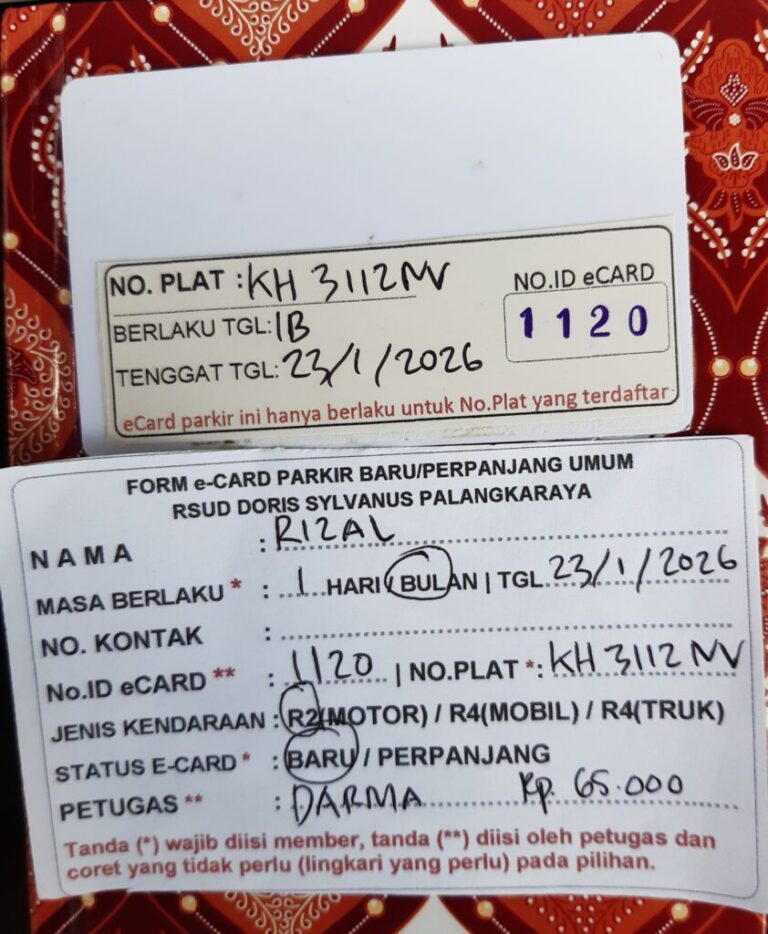 NO. PLAT : KH 3112 NV
NO.ID eCARD
1120
BERLAKU TGL: 1B
TENGGAT TGL: 23/1/2026
eCard parkir ini hanya berlaku untuk No.Plat yang terdaftar
FORM e-CARD PARKIR BARU/PERPANJANG UMUM
RSUD DORIS SYLVANUS PALANGKARAYA
NAMA : RIZAL
MASA BERLAKU * : 1 HARI / BULAN | TGL 23/1/2026
NO. KONTAK :
No.ID eCARD ** : 1120 | NO.PLAT *: KH 3112 NV
JENIS KENDARAAN : R2(MOTOR) / R4(MOBIL) / R4(TRUK)
STATUS E-CARD * : BARU / PERPANJANG
PETUGAS ** : DARMA Rp. 65.000
Tanda (*) wajib diisi member, tanda (**) diisi oleh petugas dan
coret yang tidak perlu (lingkari yang perlu) pada pilihan.